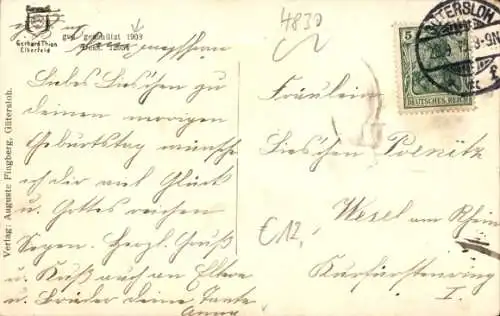 4830
Gerhard Thien
Elberfeld
ges. geschützt 1903
GÜTERSLOH
5
DEUTSCHES REICH
Verlag: Auguste Flagberg, Gütersloh.
Liebes Lieschen zu
deinem morigen
Geburtstag wünsche
ich dir viel Glück
u. Gottes reichen
Segen. Herzl. Gruß
u. Kuß auch an Eltern
u. Brüder deine Tante
Anna
Fräulein
Lieschen Poenitz
Wesel am Rhein
Kurfürstenring
I.
€12,